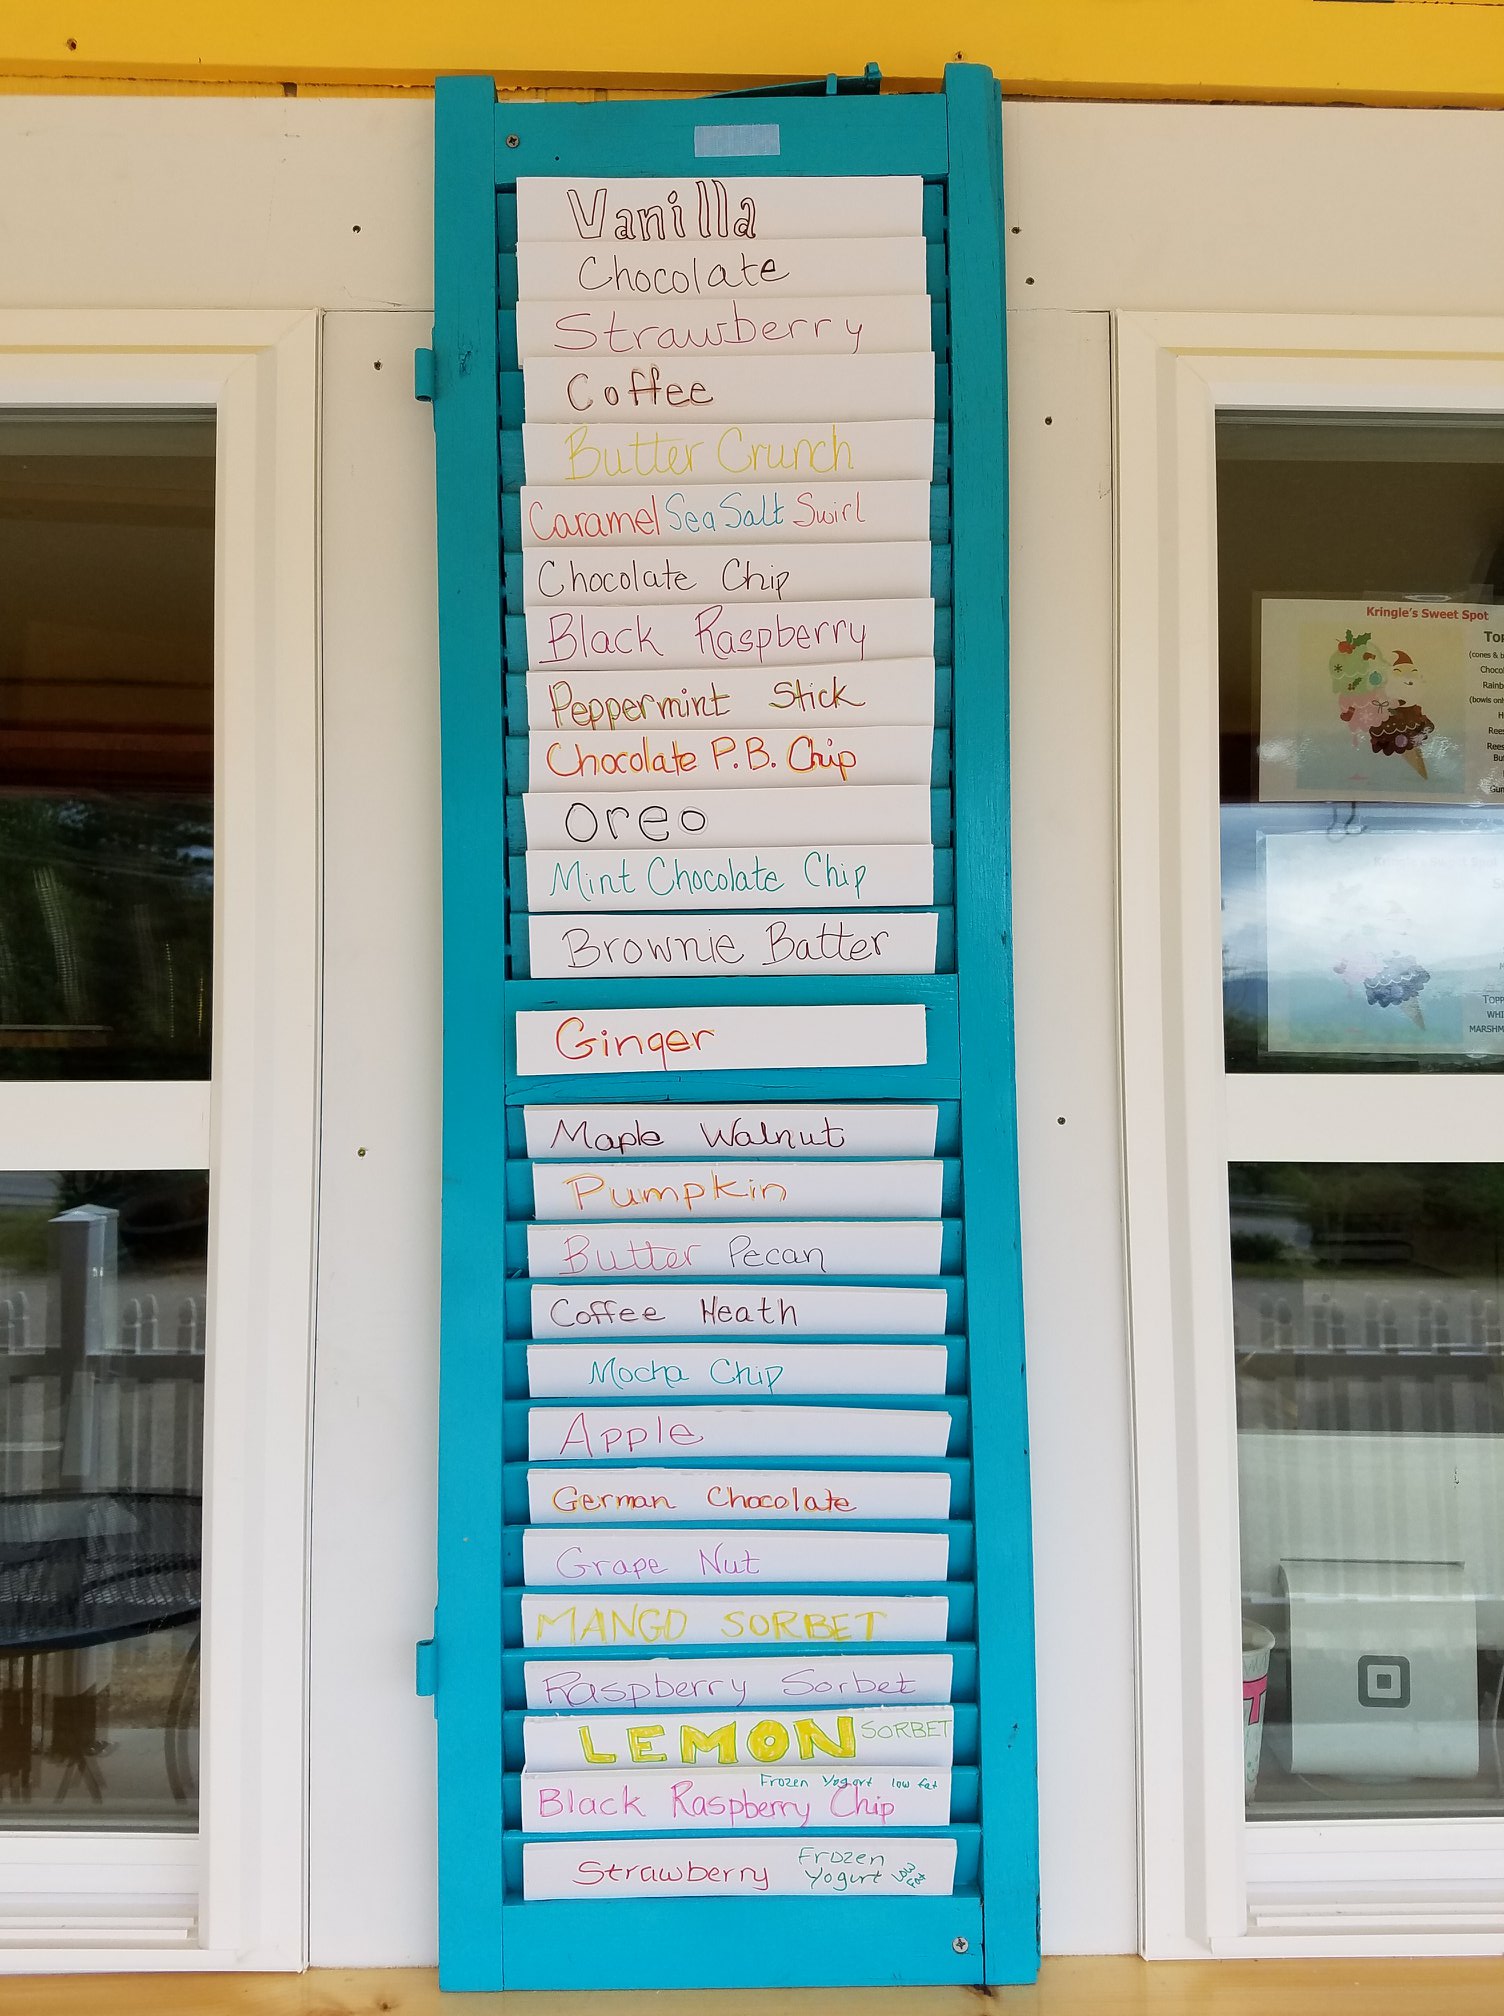 Vanilla
Chocolate
Strawberry
Coffee
Butter Crunch
Caramel Sea Salt Swirl
Chocolate Chip
Black Raspberry
Peppermint Stick
Chocolate P.B. Chip
Oreo
Mint Chocolate Chip
Brownie Batter
Ginger
Maple Walnut
Pumpkin
Butter Pecan
Coffee Heath
Mocha Chip
Apple
German Chocolate
Grape Nut
MANGO SORBET
Raspberry Sorbet
LEMON SORBET
Frozen Yogurt low fat
Black Raspberry Chip
Strawberry Frozen
Yogurt Low
Fat
Kringle's Sweet Spot
(cones & b
Choco
Rainb
(bowls onl
H
Rees
Rees
Bu
Gum
Kringle's Sweet Spot
TOPP
WHI
MARSHM